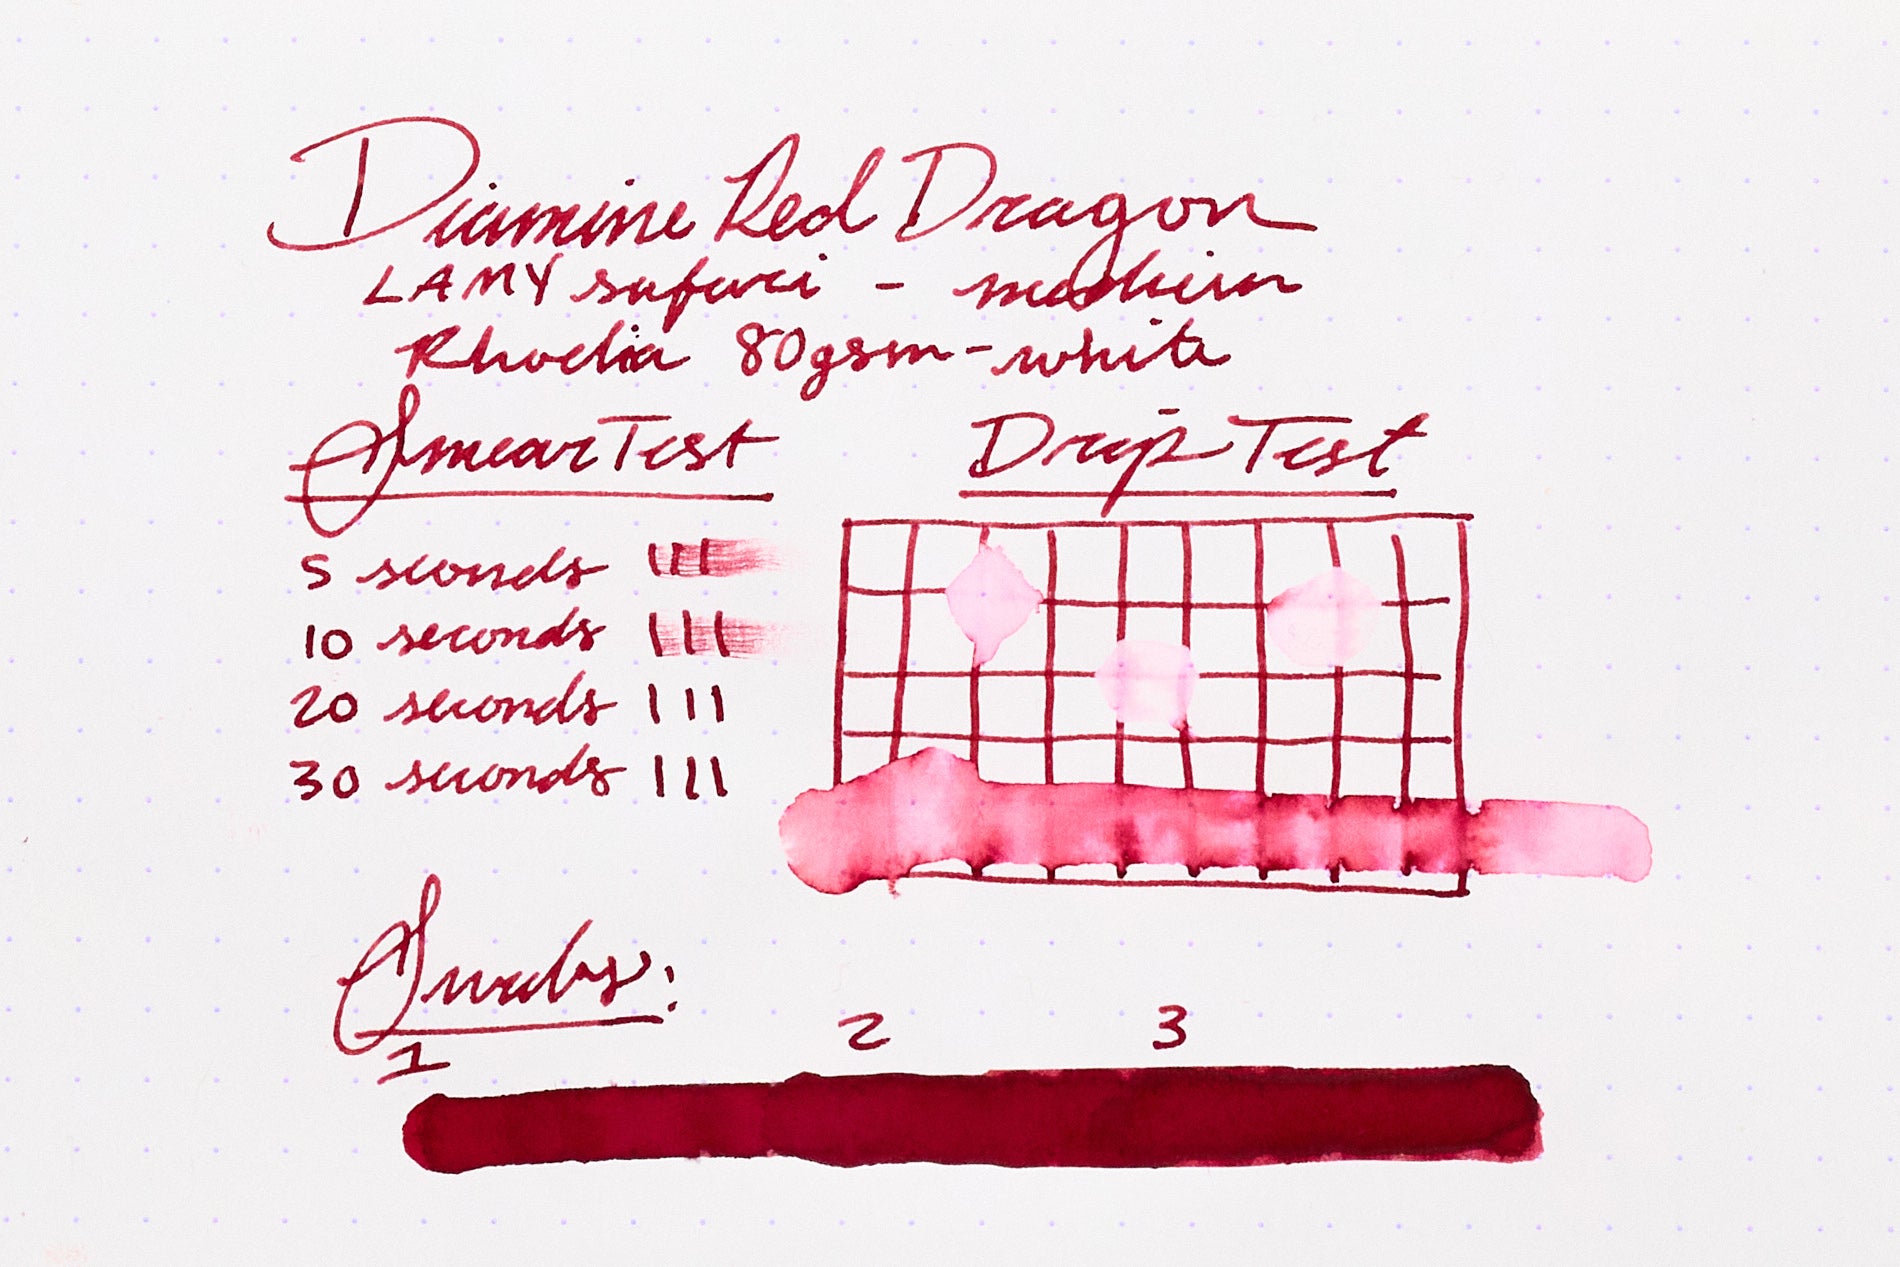 Diamine Red Dragon
LAMY safari - medium
Rhodia 80gsm - white
Smear Test
Drip Test
5 seconds
10 seconds
20 seconds
30 seconds
Swabs:
1 2 3